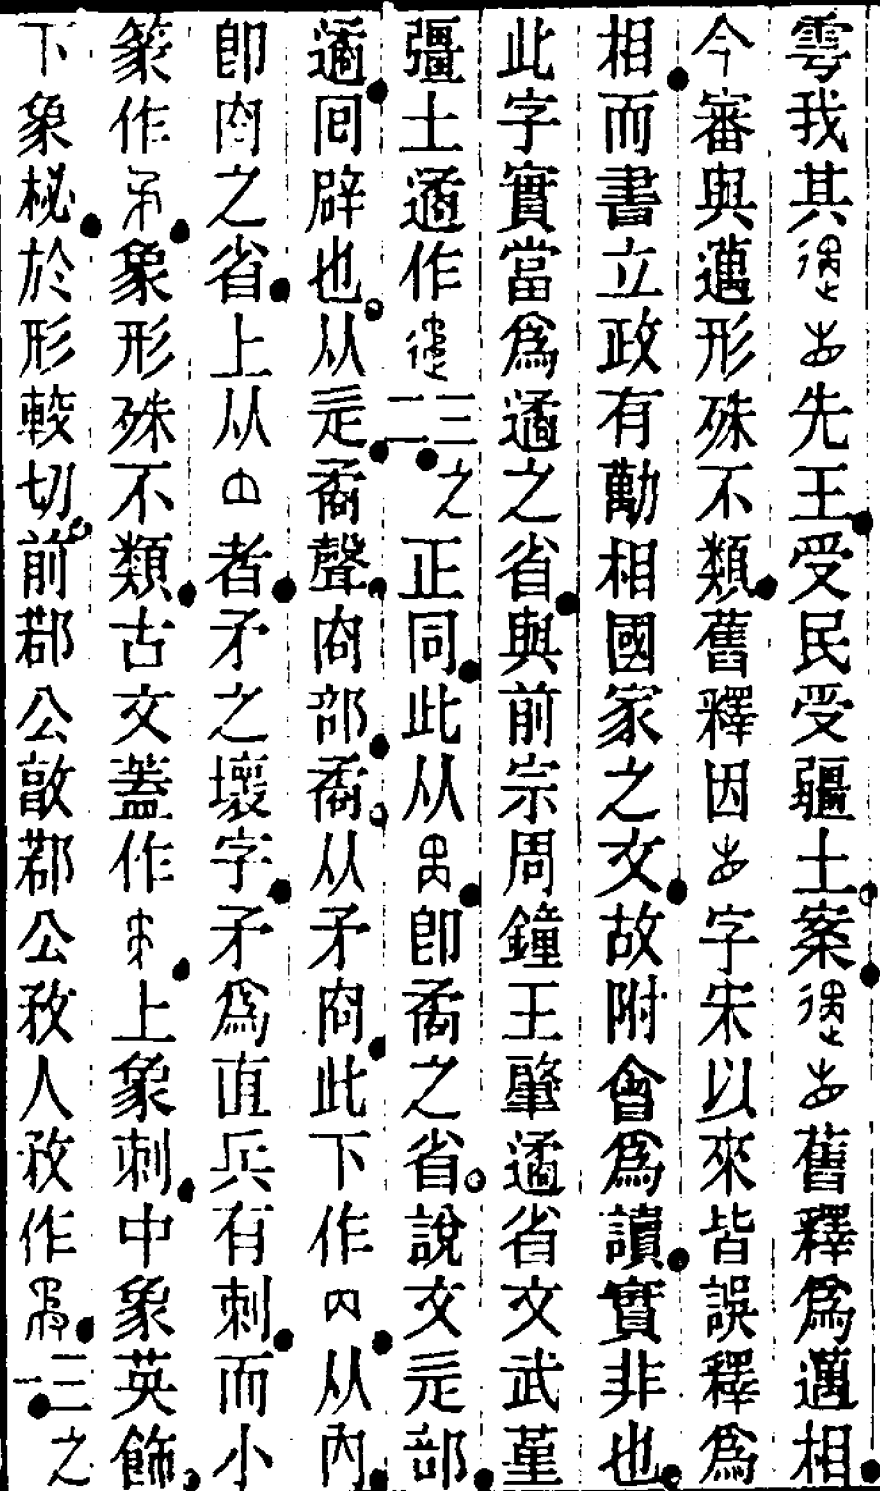 雩我其先王受民受疆土案舊釋爲邁相
今審與邁形殊不類舊釋因字宋以來皆誤釋爲
相而書立政有勱相國家之文故附會爲讀實非也
此字實當爲遹之省與前宗周鐘王肈遹省文武堇
彊土遹作三二之正同此从即矞之省說文辵部
遹回辟也从辵矞聲㕯部矞从矛㕯此下作从內
即㕯之省上从者矛之壞字矛爲直兵有刺而小
篆作象形殊不類古文蓋作上象刺中象英飾
下象柲於形較切前鄀公敄鄀公敄人敄作三一之